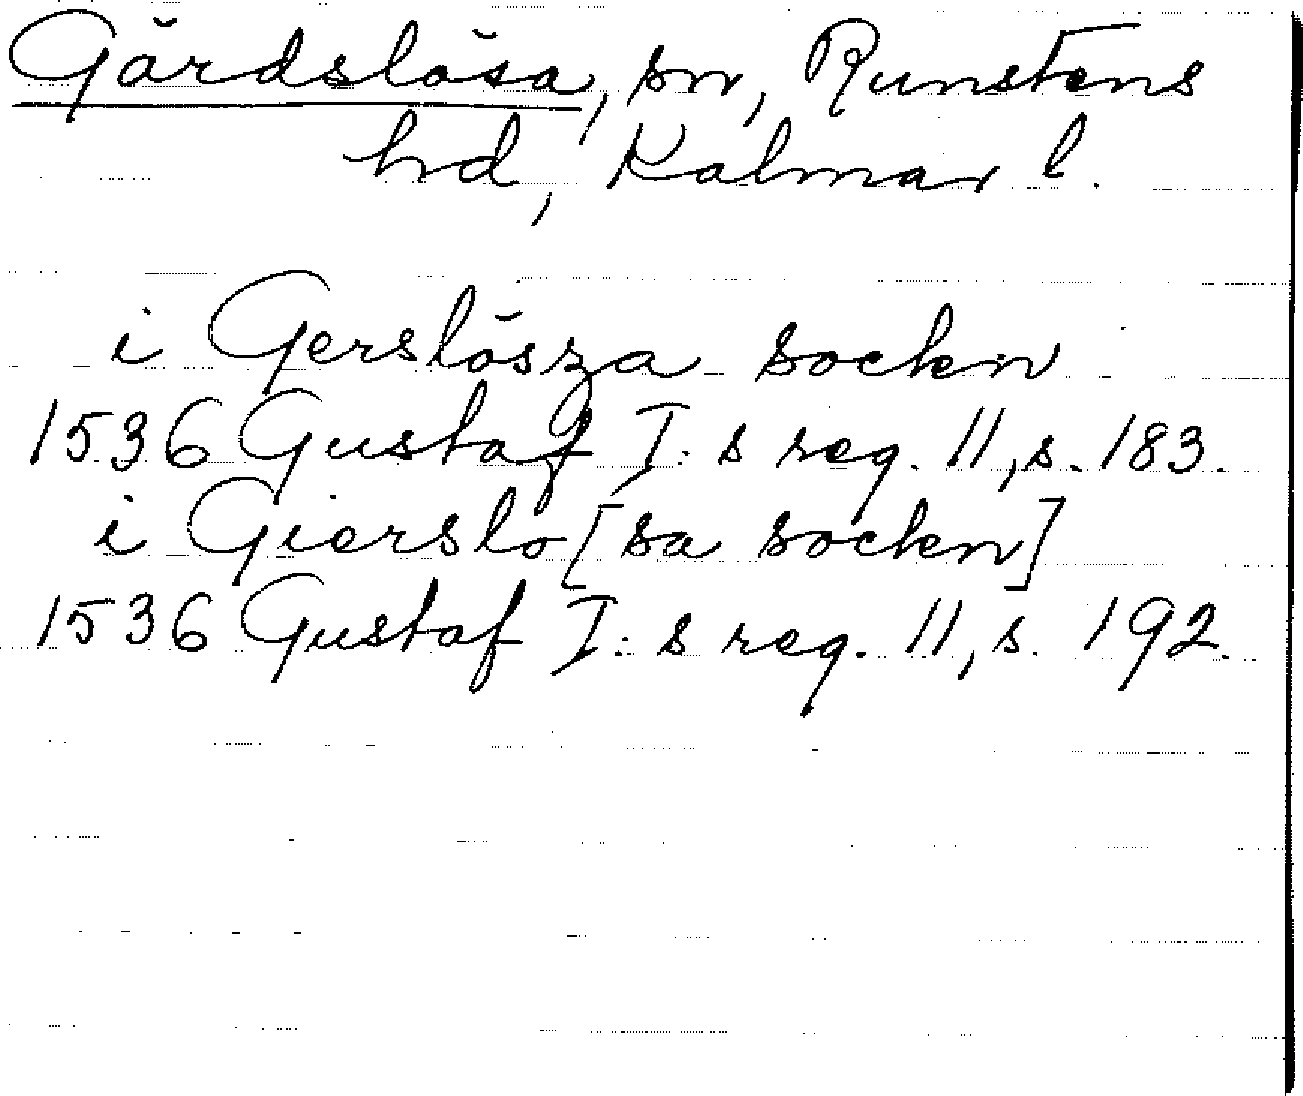 Gärdslösa, sn, Runstens
hd, Kalmar l.
i Gerslösza sockn
1536 Gustaf I:s reg. 11, s. 183.
i Gierslo[sa sockn]
1536 Gustaf I:s reg. 11, s. 192.